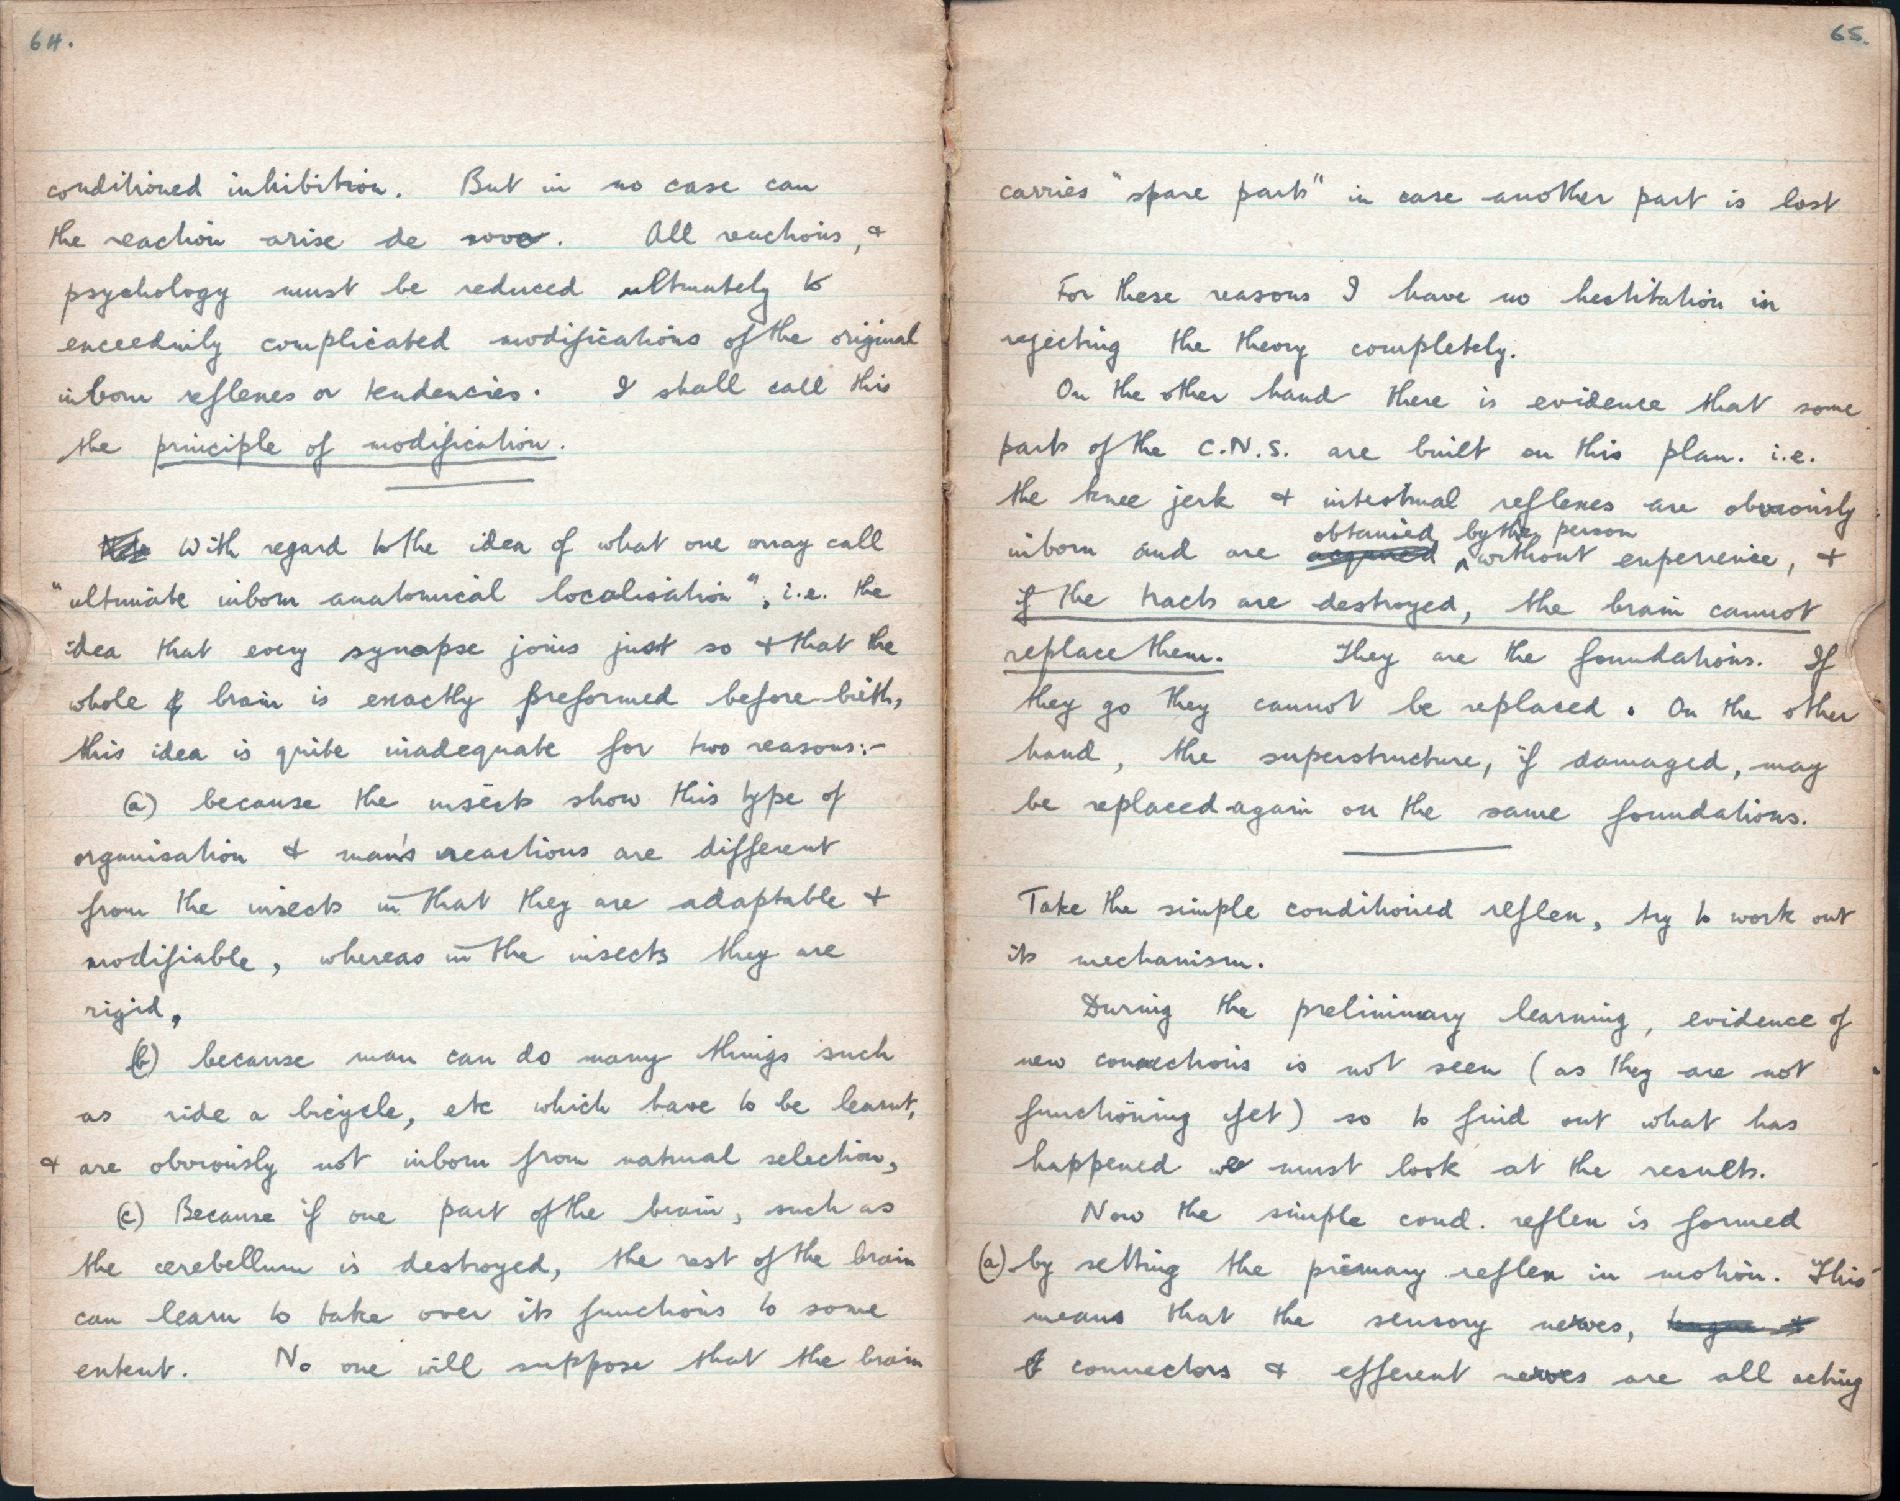 64.
conditioned inhibition. But in no case can
the reaction arise de novo. All reactions, &
psychology must be reduced ultimately to
exceedinily complicated modifications of the original
inborn reflexes or tendencies. I shall call this
the principle of modification.
With regard to the idea of what one may call
"ultimate inborn anatomical localisation", i.e. the
idea that every synapse joins just so & that the
whole brain is exactly preformed before birth,
this idea is quite inadequate for two reasons:-
(a) because the insects show this type of
organisation & man's reactions are different
from the insects in that they are adaptable &
modifiable, whereas in the insects they are
rigid,
(b) because man can do many things such
as ride a bicycle, etc which have to be learnt,
& are obviously not inborn from natural selection,
(c) Because if one part of the brain, such as
the cerebellum is destroyed, the rest of the brain
can learn to take over its functions to some
extent. No one will suppose that the brain
65.
carries "spare parts" in case another part is lost
For these reasons I have no hestitation in
rejecting the theory completely.
On the other hand there is evidence that some
parts of the C.N.S. are built on this plan. i.e.
the knee jerk & intestinal reflexes are obviously
obtained by the person
inborn and are acquired without experience, &
if the tracts are destroyed, the brain cannot
replace them. They are the foundations. If
they go they cannot be replaced. On the other
hand, the superstructure, if damaged, may
be replaced again on the same foundations.
Take the simple conditioned reflex, try to work out
its mechanism.
During the preliminary learning, evidence of
new connections is not seen (as they are not
functioning yet) so to find out what has
happened we must look at the results.
Now the simple cond. reflex is formed
(a) by setting the primary reflex in motion. This
means that the sensory nerves,
connectors & efferent nerves are all acting